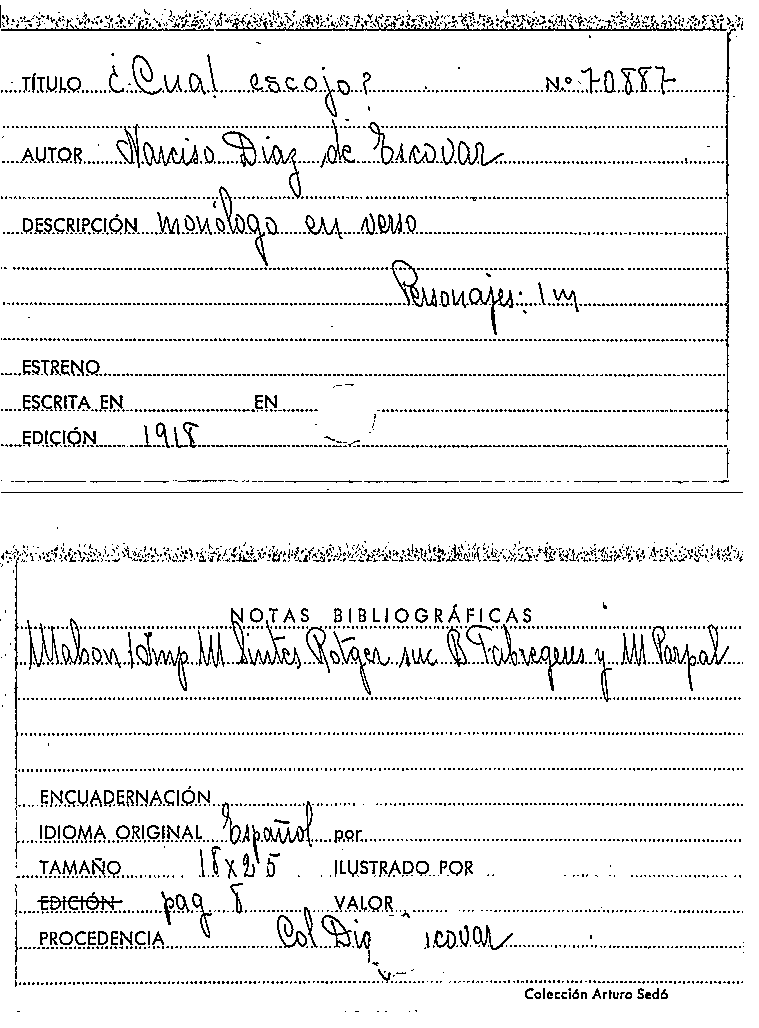 TÍTULO ¿Cual escojo? N.º 70887
AUTOR Narciso Díaz de Escovar
DESCRIPCIÓN monólogo en verso
Personajes: 1 m
ESTRENO
ESCRITA EN EN
EDICIÓN 1918
NOTAS BIBLIOGRÁFICAS
Mahon Imp M Sintes Rotger suc B Fabregues y M Parpal
ENCUADERNACIÓN
IDIOMA ORIGINAL Español por
TAMAÑO 18 x 25 ILUSTRADO POR
EDICIÓN pag 8 VALOR
PROCEDENCIA Col Dia
Colección Arturo Sedó